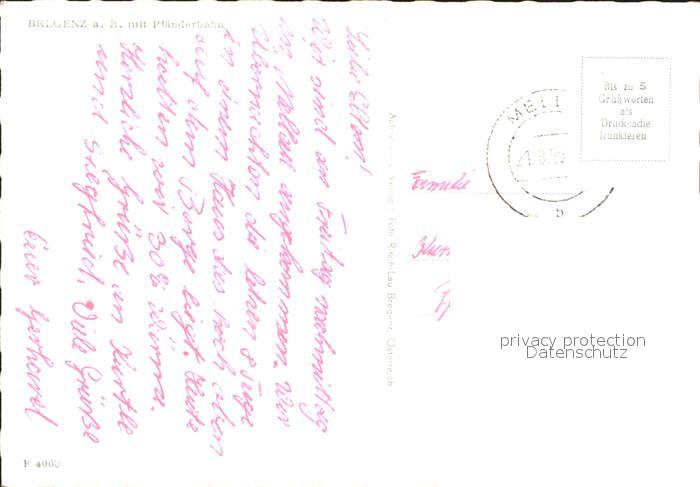 BREGENZ a. B. mit Pfänderbahn
Liebe Eltern!
Wir sind am Freitag nachmittag
in Mellau angekommen. Wir
übernachten die ersten 8 Tage
in einem Haus das hoch oben
auf dem Berge liegt. Heute
hatten wir 30° Wärme.
Herzliche Grüße an
und Siegfried. Viele Grüße
Euer Gerhard
F 4000
Verlag: Foto Risch-Lau Bregenz, Österreich
Familie
MELL
1.8.59
b
Bis zu 5
Grußworten
als
Drucksache
frankieren
privacy protection
Datenschutz